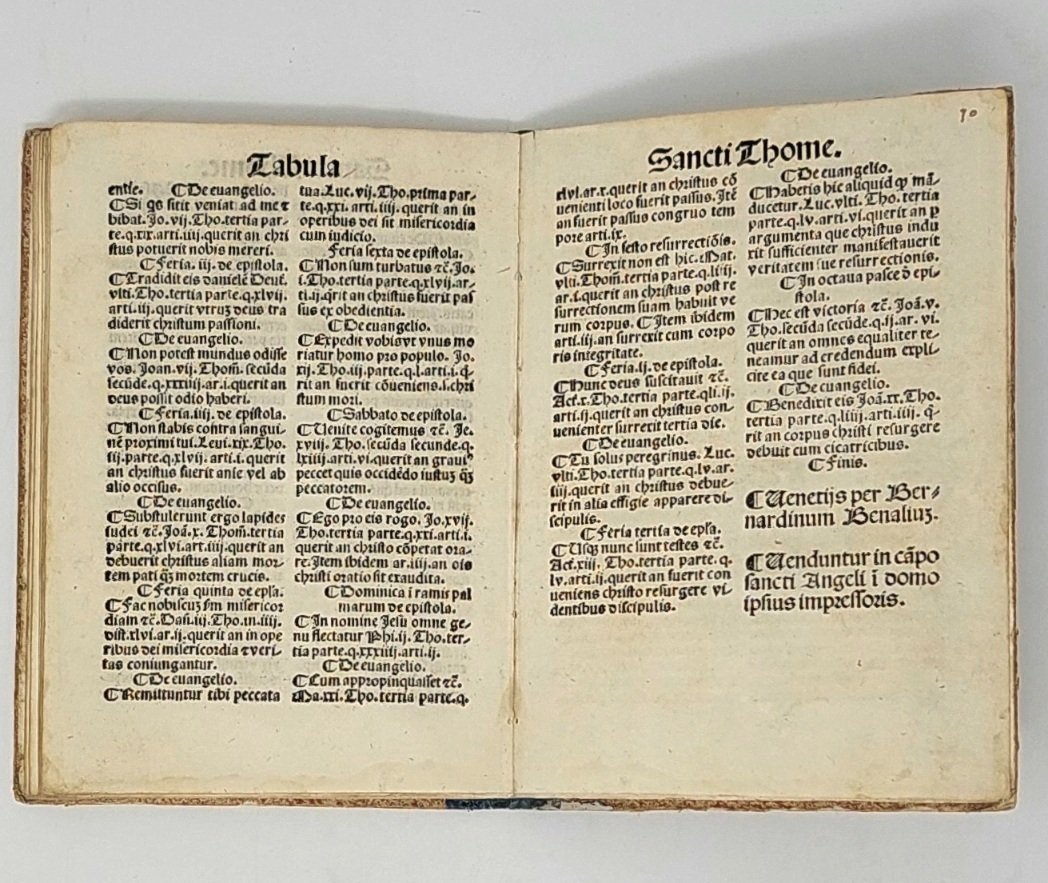 Tabula
entie. ¶De euangelio.
¶Si qs sitit veniat ad me ⁊
bibat. Jo. vij. Tho. tertia par-
te.q.xix.arti.iiij.querit an chri
stus potuerit nobis mereri.
¶Feria. iij. de epistola.
¶Tradidit eis danielē Deut.
vlti. Tho.tertia parte.q.xlvij.
arti.iij.querit vtruȝ deus tra
diderit christum passioni.
¶De euangelio.
¶Non potest mundus odisse
vos. Joan.vij. Thom. secūda
secūde.q.xxxiiij.ar.i.querit an
deus possit odio haberi.
¶Feria.iiij. de epistola.
¶Non stabis contra sangui-
nē proximi tui. Leui.xix. Tho.
iij.parte.q.xlvij.arti.i.querit
an christus fuerit ante vel ab
alio occisus.
¶De euangelio.
¶Substulerunt ergo lapides
iudei ⁊c̄. Joā.x. Thom.tertia
parte.q.xlvi.art.iij.querit an
debuerit christus aliam mor-
tem pati q̄ȝ mortem crucis.
¶Feria quinta de epl̄a.
¶Fac nobiscuȝ s̄m misericor
diam ⁊c̄. Dañ.iij. Tho.in.iiij.
dist.xlvi.ar.ij.querit an in ope
ribus dei misericordia ⁊ veri-
tas coniungantur.
¶De euangelio.
¶Remittuntur tibi peccata
tua. Luc. vij. Tho.prima par-
te.q.xxi.arti.iiij.querit an in
operibus dei sit misericordia
cum iudicio.
Feria sexta de epistola.
¶Non sum turbatus ⁊c̄. Jo.
i. Tho.tertia parte.q.xlvij.ar-
ti.ij.q̄rit an christus fuerit pas
sus ex obedientia.
¶De euangelio.
¶Expedit vobis vt vnus mo
riatur homo pro populo. Jo.
xij. Tho.iij.parte.q.l.arti.i.q̄-
rit an fuerit cōueniens.s.chri
stum mori.
¶Sabbato de epistola.
¶Uenite cogitemus ⁊c̄. Je.
xviij. Tho.secūda secunde.q.
lxiiij.arti.vi.querit an graui⁹
peccet quis occidēdo iustuȝ q̄ȝ
peccatorem.
¶De euangelio.
¶Ego pro eis rogo. Jo.xvij.
Tho.tertia parte.q.xxi.arti.i.
querit an christo cōpetat ora-
re. Item ibidem ar.iiij.an ois
christi oratio sit exaudita.
¶Dominica ī ramis pal
marum de epistola.
¶In nomine Jesu omne ge-
nu flectatur Phi.ij. Tho.ter-
tia parte.q.xxxiiij.arti.ij.
¶De euangelio.
¶Cum appropinquasset ⁊c̄.
Ma.xxi. Tho.tertia parte.q.
10
Sancti Thome.
xlvi.ar.x.querit an christus cō
uenienti loco fuerit passus. Itē
an fuerit passus congruo tem
pore arti.ix.
¶In festo resurrectiōis.
¶Surrexit non est hic. Mat.
vlti. Thom.tertia parte.q.liiij.
ar.i.querit an christus post re
surrectionem suam habuit ve
rum corpus. ¶Item ibidem
arti.iij.an surrexit cum corpo
ris integritate.
¶Feria.ij. de epistola.
¶Nunc deus suscitauit ⁊c̄.
Act.x. Tho.tertia parte.qli.ij.
arti.ij.querit an christus con-
uenienter surrexit tertia die.
¶De euangelio.
¶Tu solus peregrinus. Luc.
vlti. Tho.tertia parte.q.lv.ar.
iiij.querit an christus debue-
rit in alia effigie apparere di-
scipulis.
¶Feria tertia de epl̄a.
¶Usq; nunc sunt testes ⁊c̄.
Act.xiij. Tho.tertia parte.q.
lv.arti.ij.querit an fuerit con
ueniens christo resurgere vi-
dentibus discipulis.
¶De euangelio.
¶Habetis hic aliquid qp mā-
ducetur. Luc.vlti. Tho. tertia
parte.q.lv.arti.vi.querit an p
argumenta que christus indu
xit sufficienter manifestauerit
veritatem sue resurrectionis.
¶In octaua pasce d̄ epi-
stola.
¶Hec est victoria ⁊c̄. Joā.v.
Tho.secūda secūde.q.ij.ar. vi.
querit an omnes equaliter te-
neamur ad credendum expli-
cite ea que sunt fidei.
¶De euangelio.
¶Benedixit eis Joā.xx. Tho.
tertia parte.q.liiij.arti.iiij. q̄-
rit an corpus christi resurgere
debuit cum cicatricibus.
¶Finis.
¶Uenetijs per Ber-
nardinum Benaliuȝ.
¶Uenduntur in cāpo
sancti Angeli ī domo
ipsius impressoris.